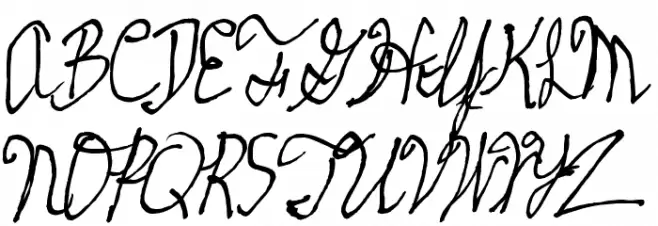 ABCDEFGHIJKLM
NOPQRSTUVWXYZ